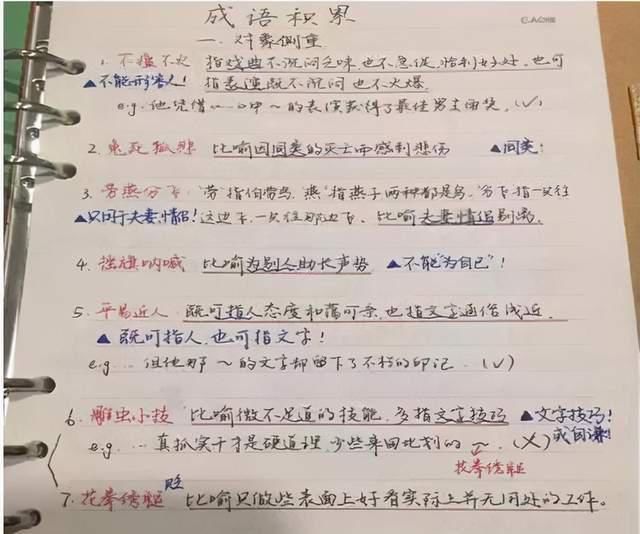 成语积累
一、对象侧重
1. 不瘟不火 指戏曲不沉闷乏味,也不急促,恰到好处,也可
▲不能形容人! 指表演既不沉闷也不火爆.
e.g. 他凭借……中~的表演获得了最佳男主角奖. (√)
2. 兔死狐悲 比喻因同类的灭亡而感到悲伤 ▲同类!
3. 劳燕分飞 "劳"指伯劳鸟,"燕"指燕子两种都是鸟,"分飞"指一只往
▲只可于夫妻情侣! 这边飞,一只往那边飞. 比喻夫妻情侣别离.
4. 摇旗呐喊 比喻为别人助长声势 ▲不能"为自己"!
5. 平易近人 既可指人态度和蔼可亲,也指文字通俗浅近.
▲既可指人,也可指文字!
e.g. … 但他那~的文字却留下了不朽的印记. (√)
6. 雕虫小技 比喻微不足道的技能,多指文字技巧 ▲文字技巧!
或自谦!
e.g. … 真抓实干才是硬道理,少些来回比划的~. (×)
花拳绣腿
7. 花拳绣腿 贬 比喻只做些表面上好看实际上并无用处的工作。